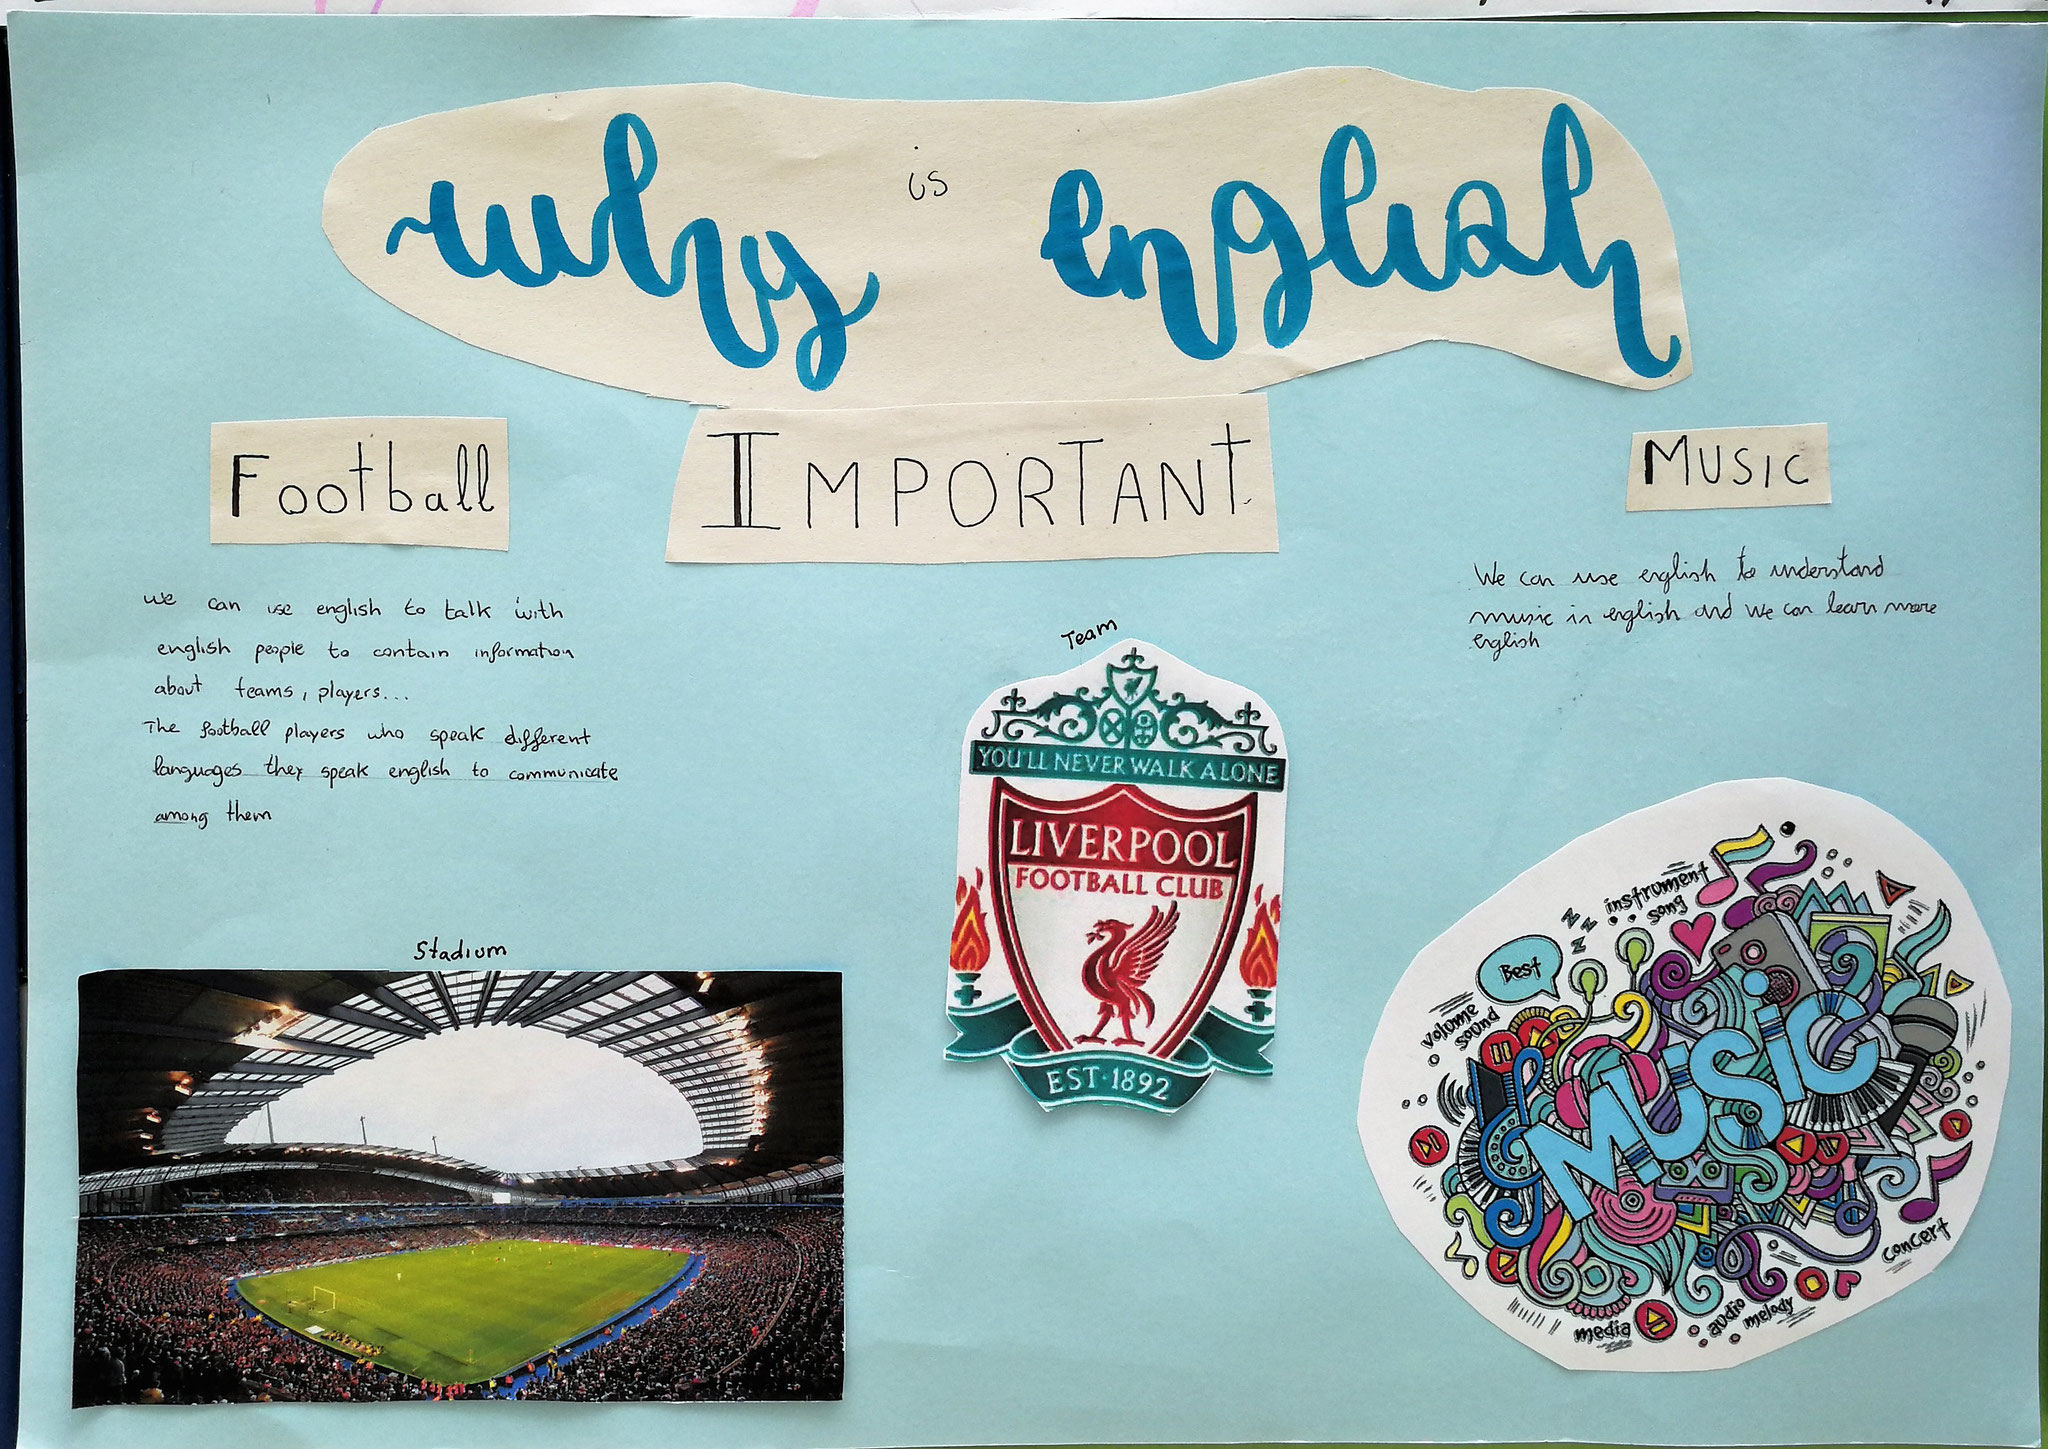 why is english
IMPORTANT
Football
we can use english to talk with
english people to contain information
about teams, players...
The football players who speak different
languages they speak english to communicate
among them
Stadium
Team
YOU'LL NEVER WALK ALONE
LIVERPOOL
FOOTBALL CLUB
EST·1892
MUSIC
We can use english to understand
music in english and we can learn more
english
instrument
song
Best
volume
sound
MUSiC
concert
media
audio
melody